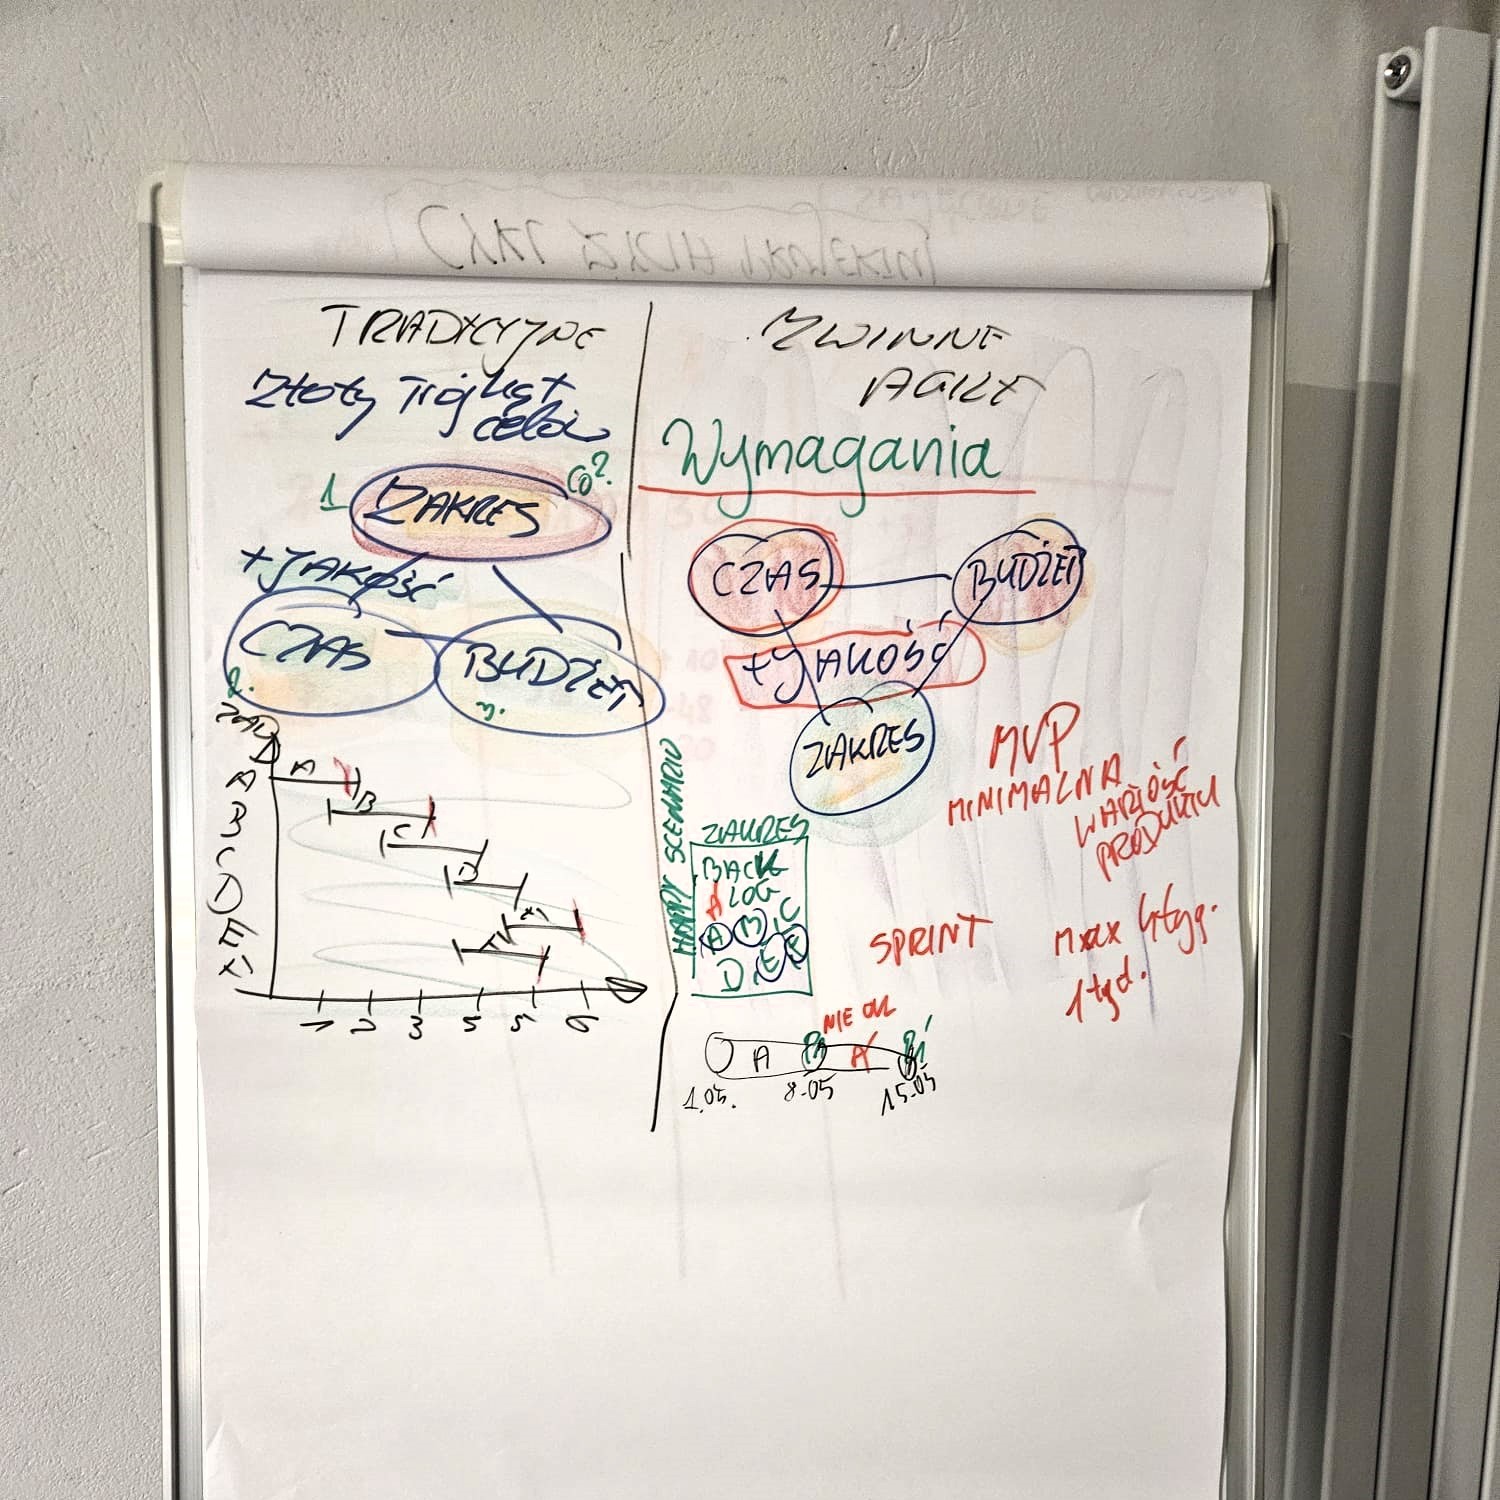 TRADYCYJNE
Złoty Trójkąt
celów
1
ZAKRES
CO?
+JAKOŚĆ
CZAS
2.
BUDŻET
3.
ZAD
A
A
B
B
C
C
D
D
E
1 2 3 5 5 6
ZWINNE
AGILE
Wymagania
CZAS
BUDŻET
+JAKOŚĆ
ZAKRES
MVP
MINIMALNA
WARTOŚĆ
PRODUKTU
HAPPY SCENARIO
ZAKRES
BACK
LOG
A
A B C
D E
SPRINT
max 4tyg.
1tyd.
NIE OK
A
A
1.05.
8.05
15.05